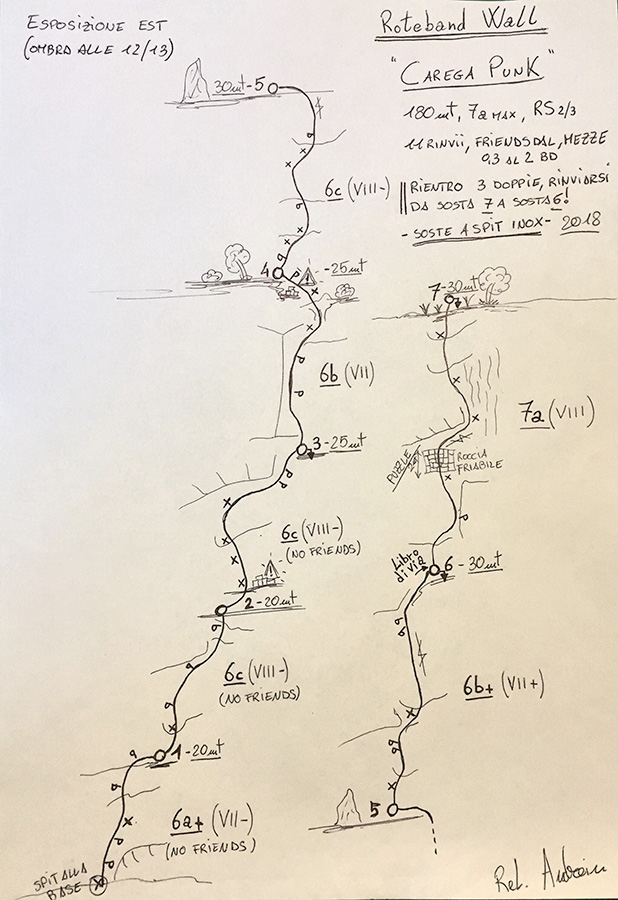 ESPOSIZIONE EST
(OMBRA ALLE 12/13)
Roteband Wall
"CAREGA PUNK"
180mt, 7a MAX, RS2/3
11 RINVII, FRIENDS DAL, MEZZE
0,3 AL 2 BD
RIENTRO 3 DOPPIE, RINVIARSI
DA SOSTA 7 A SOSTA 6!
- SOSTE A SPIT INOX - 2018
30mt-5
6c (VIII-)
4 -25mt
6b (VII)
3-25mt
6c (VIII-)
(NO FRIENDS)
2-20mt
6c (VIII-)
(NO FRIENDS)
1-20mt
6a+ (VII-)
(NO FRIENDS)
SPIT ALLA
BASE
7-30mt
7a (VIII)
PUZZLE
ROCCIA
FRIABILE
Libro
di via
6 -30mt
6b+ (VII+)
5
Rel.